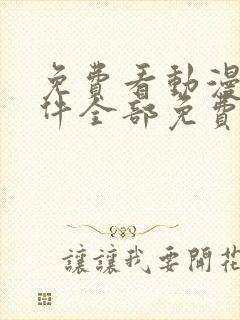 免費看動漫
件全部免費
讓讓我要開花